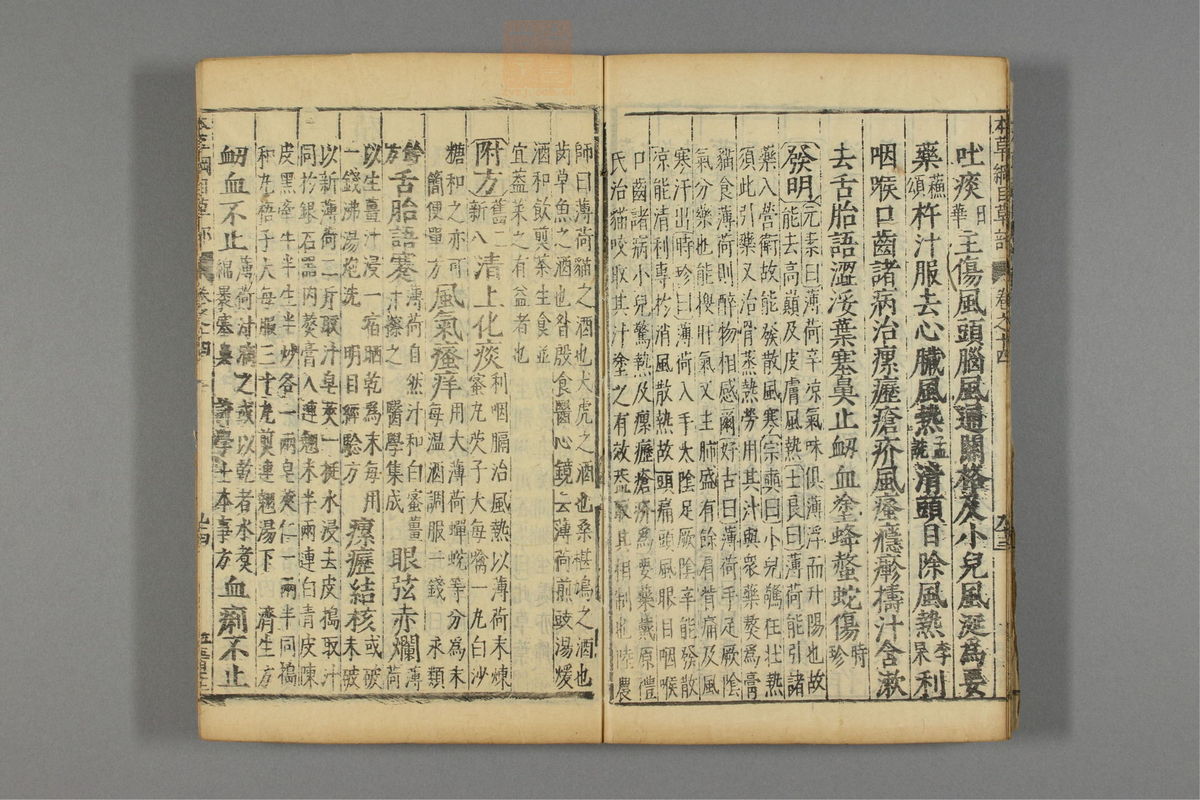 吐痰日華主傷風頭腦風通關格及小兒風涎為要
藥蘇頌杵汁服去心臟風熱孟詵清頭目除風熱李杲利
咽喉口齒諸病治瘰癧瘡疥風瘙癮𤺋擣汁含漱
去舌胎語澀挼葉塞鼻止衂血塗蜂螫蛇傷時珍
發明元素曰薄荷辛凉氣味俱薄浮而升陽也故
能去高巔及皮膚風熱士良曰薄荷能引諸
藥入營衛故能發散風寒宗奭曰小兒驚狂壯熱
須此引藥又治骨蒸熱勞用其汁與衆藥熬為膏
猫食薄荷則醉物相感爾好古曰薄荷手足厥陰
氣分藥也能搜肝氣又主肺盛有餘肩背痛及風
寒汗出時珍曰薄荷入手太陰足厥陰辛能發散
凉能清利專於消風散熱故頭痛頭風眼目咽喉
口齒諸病小兒驚熱及瘰癧瘡疥為要藥戴原禮
氏治猫咬取其汁塗之有效盖取其相制也陸農
師曰薄荷猫之酒也犬虎之酒也桑椹鳩之酒也
䒽草魚之酒也昝殷食醫心鏡云薄荷煎豉湯煖
酒和飲煎茶生食並
宜盖菜之有益者也
附方舊二新八清上化痰利咽膈治風熱以薄荷末煉
蜜丸芡子大每噙一丸白沙
糖和之亦可
簡便單方風氣瘙痒用大薄荷蟬蛻等分為末
每温酒調服一錢永類
鈐方舌胎語蹇薄荷自然汁和白蜜薑
汁擦之醫學集成眼弦赤爛薄荷
以生薑汁浸一宿晒乾為末每用
一錢沸湯炮洗明目經驗方瘰癧結核或破未破
以新薄荷二斤取汁皂莢一挺水浸去皮搗取汁
同於銀石器内熬膏入連翹末半兩連白青皮陳
皮黑牽牛半生半炒各一兩皂莢仁一兩半同搗
和丸梧子大每服三十丸煎連翹湯下濟生方
衂血不止薄荷汁滴之或以乾者水煮
綿裹塞鼻許學士本事方血痢不止
本草綱目草部卷之十四
九三
九四